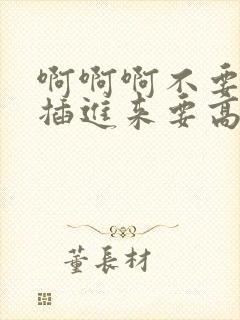 啊啊啊不要
插进来要高
董長材